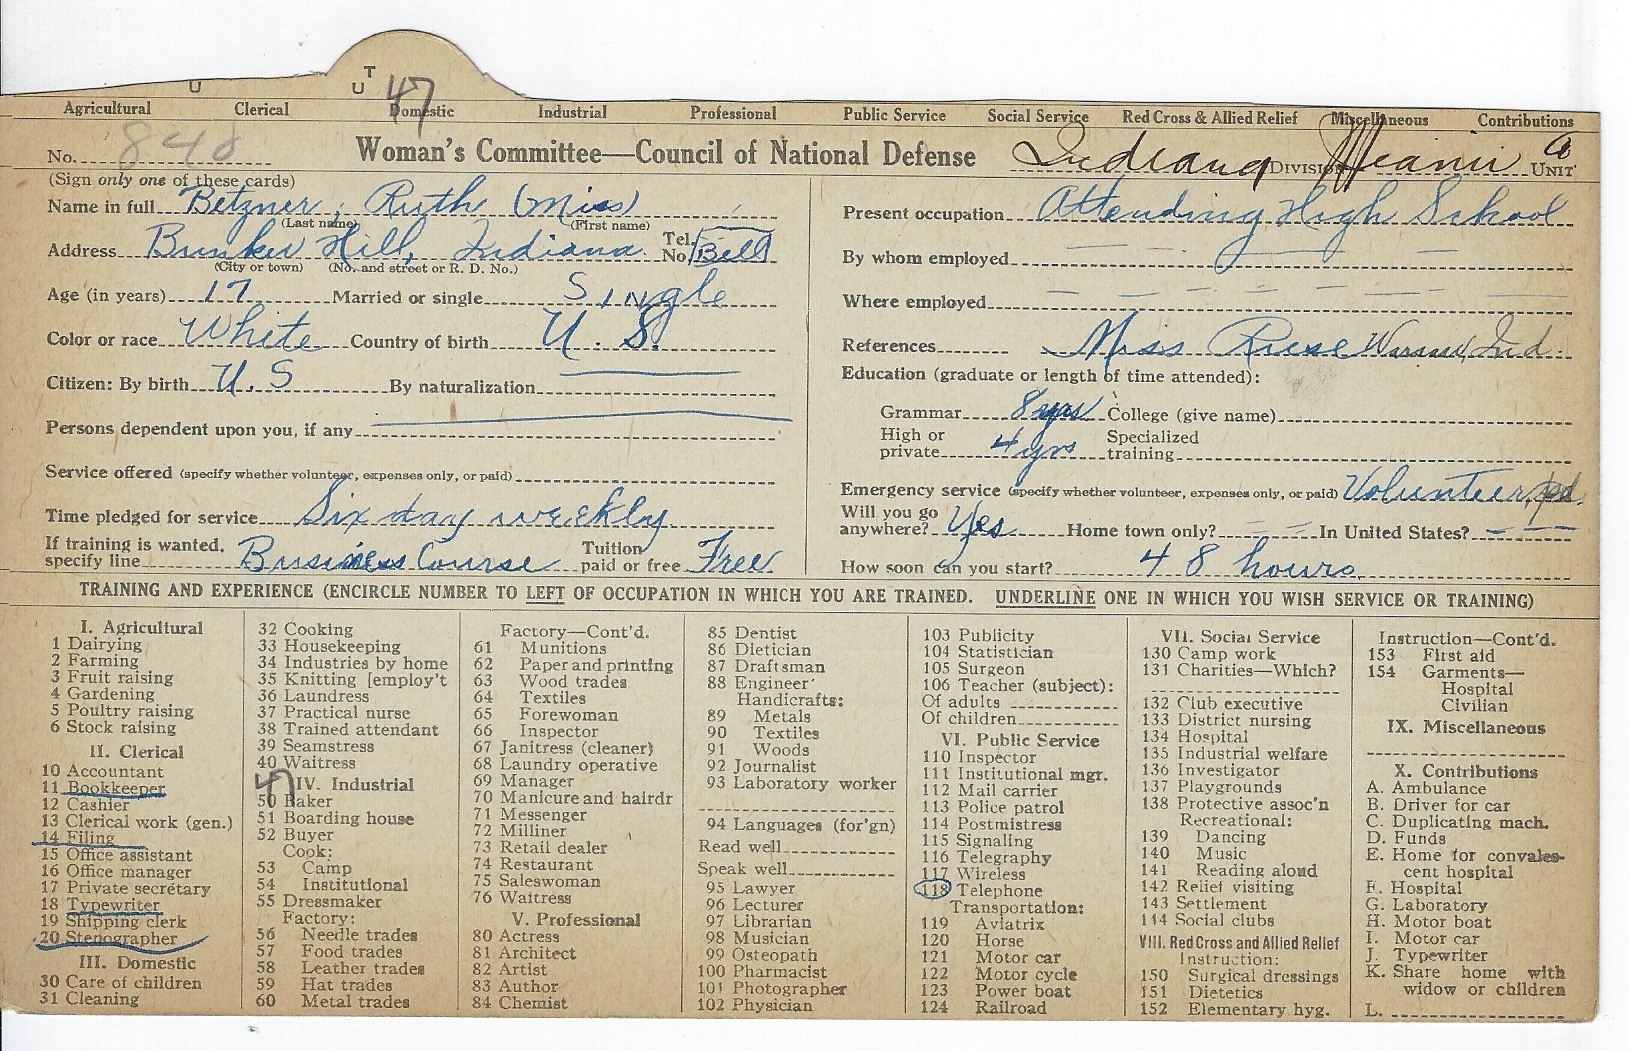 U U T 47
Agricultural Clerical Domestic Industrial Professional Public Service Social Service Red Cross & Allied Relief Miscellaneous Contributions
No. 848 Woman's Committee—Council of National Defense Indiana DIVISION Miami UNIT
(Sign only one of these cards)
Name in full Betzner, Ruth (Miss)
(Last name) (First name)
Address Bunker Hill, Indiana Tel. No. Bell
(City or town) (No. and street or R. D. No.)
Age (in years) 17 Married or single Single
Color or race White Country of birth U. S.
Citizen: By birth U. S By naturalization
Persons dependent upon you, if any
Service offered (specify whether volunteer, expenses only, or paid)
Time pledged for service Six day weekly
If training is wanted, specify line Business Course Tuition paid or free Free
Present occupation Attending High School
By whom employed
Where employed
References Miss Reese Warsaw, Ind.
Education (graduate or length of time attended):
Grammar 8 yrs College (give name)
High or private 4 yrs Specialized training
Emergency service (specify whether volunteer, expenses only, or paid) Volunteer, pd.
Will you go anywhere? Yes Home town only? In United States?
How soon can you start? 48 hours.
TRAINING AND EXPERIENCE (ENCIRCLE NUMBER TO LEFT OF OCCUPATION IN WHICH YOU ARE TRAINED. UNDERLINE ONE IN WHICH YOU WISH SERVICE OR TRAINING)
I. Agricultural
1 Dairying
2 Farming
3 Fruit raising
4 Gardening
5 Poultry raising
6 Stock raising
II. Clerical
10 Accountant
11 Bookkeeper
12 Cashier
13 Clerical work (gen.)
14 Filing
15 Office assistant
16 Office manager
17 Private secretary
18 Typewriter
19 Shipping clerk
20 Stenographer
III. Domestic
30 Care of children
31 Cleaning
32 Cooking
33 Housekeeping
34 Industries by home
35 Knitting [employ't
36 Laundress
37 Practical nurse
38 Trained attendant
39 Seamstress
40 Waitress
47
IV. Industrial
50 Baker
51 Boarding house
52 Buyer
Cook:
53 Camp
54 Institutional
55 Dressmaker
Factory:
56 Needle trades
57 Food trades
58 Leather trades
59 Hat trades
60 Metal trades
Factory—Cont'd.
61 Munitions
62 Paper and printing
63 Wood trades
64 Textiles
65 Forewoman
66 Inspector
67 Janitress (cleaner)
68 Laundry operative
69 Manager
70 Manicure and hairdr
71 Messenger
72 Milliner
73 Retail dealer
74 Restaurant
75 Saleswoman
76 Waitress
V. Professional
80 Actress
81 Architect
82 Artist
83 Author
84 Chemist
85 Dentist
86 Dietician
87 Draftsman
88 Engineer
Handicrafts:
89 Metals
90 Textiles
91 Woods
92 Journalist
93 Laboratory worker
94 Languages (for'gn)
Read well
Speak well
95 Lawyer
96 Lecturer
97 Librarian
98 Musician
99 Osteopath
100 Pharmacist
101 Photographer
102 Physician
103 Publicity
104 Statistician
105 Surgeon
106 Teacher (subject):
Of adults
Of children
VI. Public Service
110 Inspector
111 Institutional mgr.
112 Mail carrier
113 Police patrol
114 Postmistress
115 Signaling
116 Telegraphy
117 Wireless
118 Telephone
Transportation:
119 Aviatrix
120 Horse
121 Motor car
122 Motor cycle
123 Power boat
124 Railroad
VII. Social Service
130 Camp work
131 Charities—Which?
132 Club executive
133 District nursing
134 Hospital
135 Industrial welfare
136 Investigator
137 Playgrounds
138 Protective assoc'n
Recreational:
139 Dancing
140 Music
141 Reading aloud
142 Relief visiting
143 Settlement
144 Social clubs
VIII. Red Cross and Allied Relief
Instruction:
150 Surgical dressings
151 Dietetics
152 Elementary hyg.
Instruction—Cont'd.
153 First aid
154 Garments—
Hospital
Civilian
IX. Miscellaneous
X. Contributions
A. Ambulance
B. Driver for car
C. Duplicating mach.
D. Funds
E. Home for convales-
cent hospital
F. Hospital
G. Laboratory
H. Motor boat
I. Motor car
J. Typewriter
K. Share home with
widow or children
L.